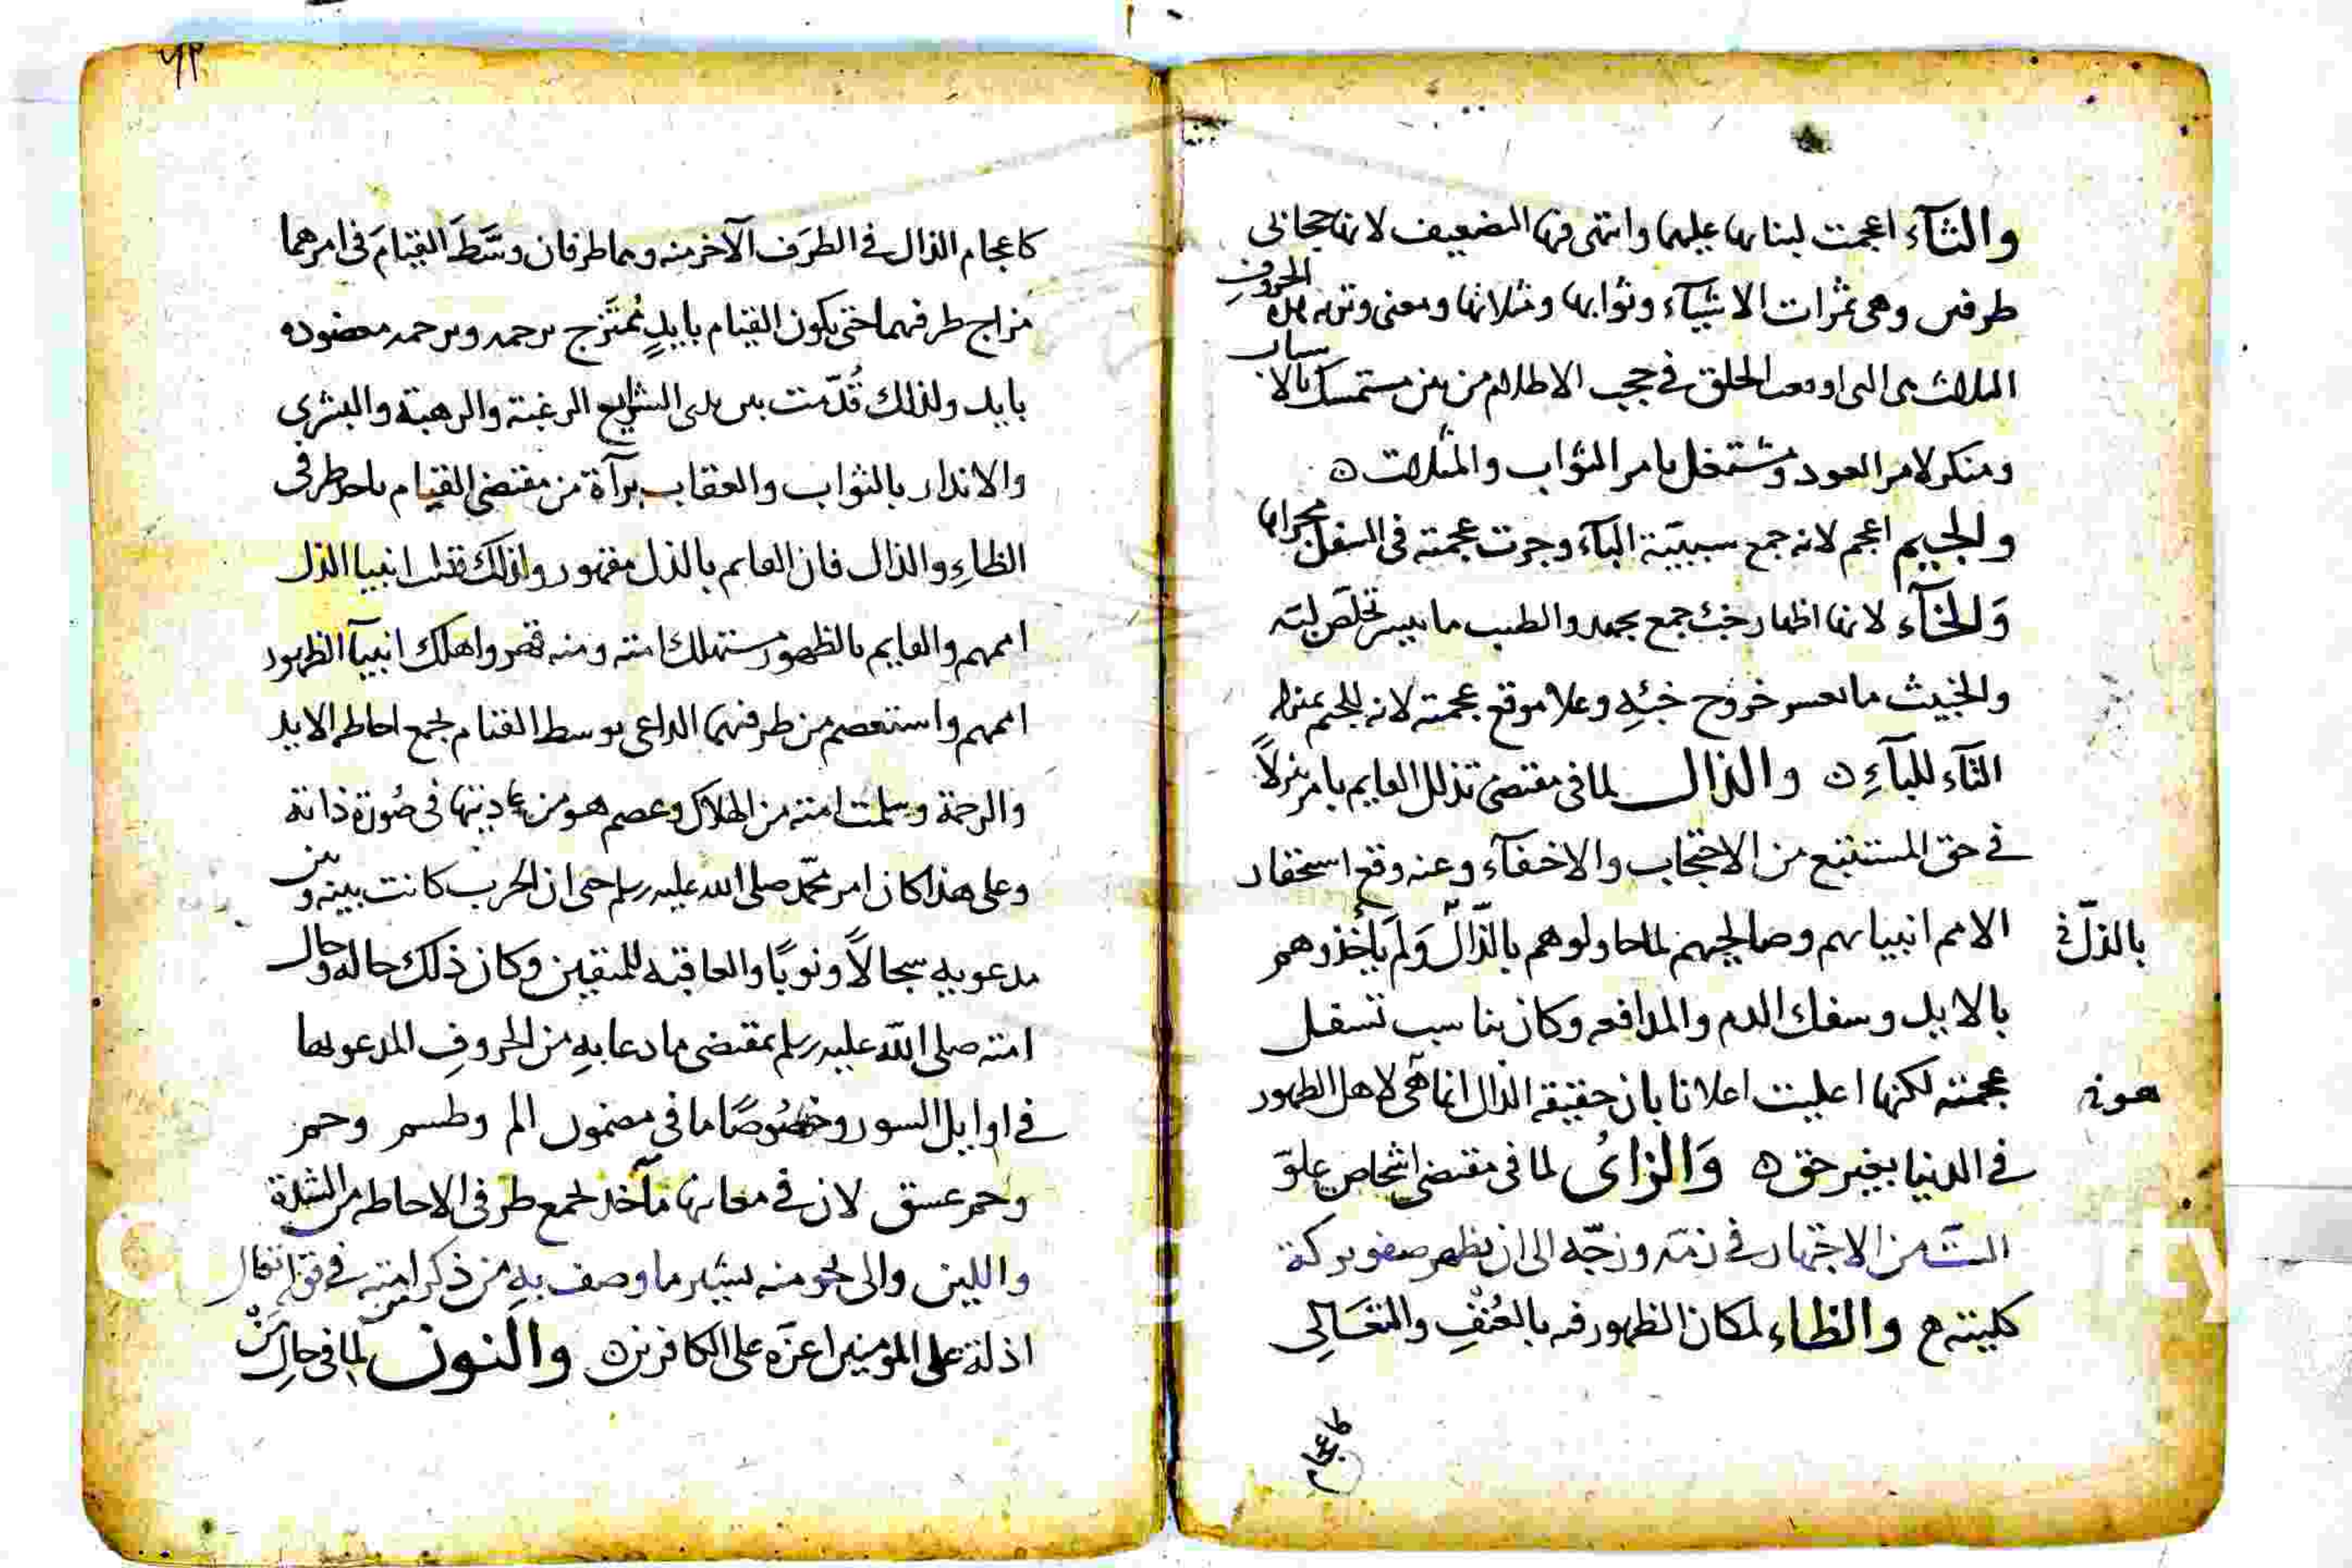 والثآء اعجمت لبنايها عليهما وانتهى فيها التضعيف لانها حجابى
طرفين وهى ثمرات الاشيآء وثوابها ومثلاتها ومعنى وترته هذه الحروف
الثلاث هى التى اوقعت الخلق فى حجب الاظلام من بين مستمسك بالاسباب
ومنكر لامر العود ومشتمل بامر الثواب والمثلات ه
والجيم اعجم لانه جمع سببيّة البآء وجرت عجمته فى السفل مجراها
وَالخآء لانها اظهار خبث جمع بجهد والطيب ما تيسر تخلّص لبّه
والخبيث ما تعسر خروج خبثه وعلا موقع عجمته لانه للجيم بمنزلة
الثآء للبآءِ ه والذال لما فى مقتضى تذلل القايم بامر تنزلاً
فى حق المستتبع من الاحتجاب والاخفآء وعنه وقع استحقار
الامم انبياهم وصالحيهم لما حاولوهم بالذّالّ وَلم يأخذوهم
بالذلّ فى
بالايد وسفك الدم والمدافعه وكان يناسب تسفل
عجمته لكنها اعليت اعلانا بان حقيقة الذال انما هى لاهل الظهور
هونه
فى الدنيا بغير حق ه وَالزاىُ لما فى مقتضى اشخاص علوّ
من الاجتهاد فى زمّه وزجّه الى ان يظهر صفو بركة
كليته ه والظاء لمكان الظهور فيه بالعُنْفِ والتعَالِى
كاعجام
٦٢
كاعجام الذال فى الطرَف الآخر منه وهما طرفان وسَّطَ القيَامَ فى امرهما
مزاج طرفيهما حتى يكون القيام بايدٍ مُمتَزج برحمه وبرحمه معضوده
بايد ولذلك قُدّمت بين يدى الشرايع الرغبة والرهبة والبشرى
والانذار بالثواب والعقاب برآة من مقتضى القيام باحد طرفى
الظاءِ والذال فان القايم بالذل مقهور ولذلك قتلت انبيا الذل
اممهم والقايم بالظهور مستهلك امته ومنه قهر واهلك انبيآ الظهور
اممهم واستعصم من طرفيهما الداعى بوسط القيام لجمع احاطة الايد
والرحمة وسلمت امته من الهلاك وعصم هو من عاديتها فى صُورة ذاته
وعلى هذا كان امر محمّد صلى الله عليه وسلم حتى ان الحرب كانت بينه وبين
مدعويه سجالاً ونوبًا والعاقبه للمتقين وكان ذلك حاله وحال
امته صلى اللّه عليه وسلم بمقتضى ما دعا بهِ من الحروفِ المدعو بها
فى اوايل السور وخصُوصًا ما فى مضمون الم وطسم وحم
وحم عسق لان فى معانيها مآخذ لجمع طرفى الاحاطه من الشدة
واللين والى نحو منه يشير ما وصف بهِ من ذكر امته فى قوله تعالى
اذلة على المومنين اعزّه على الكافرين ه والنون لما فى حالِ مَنْ